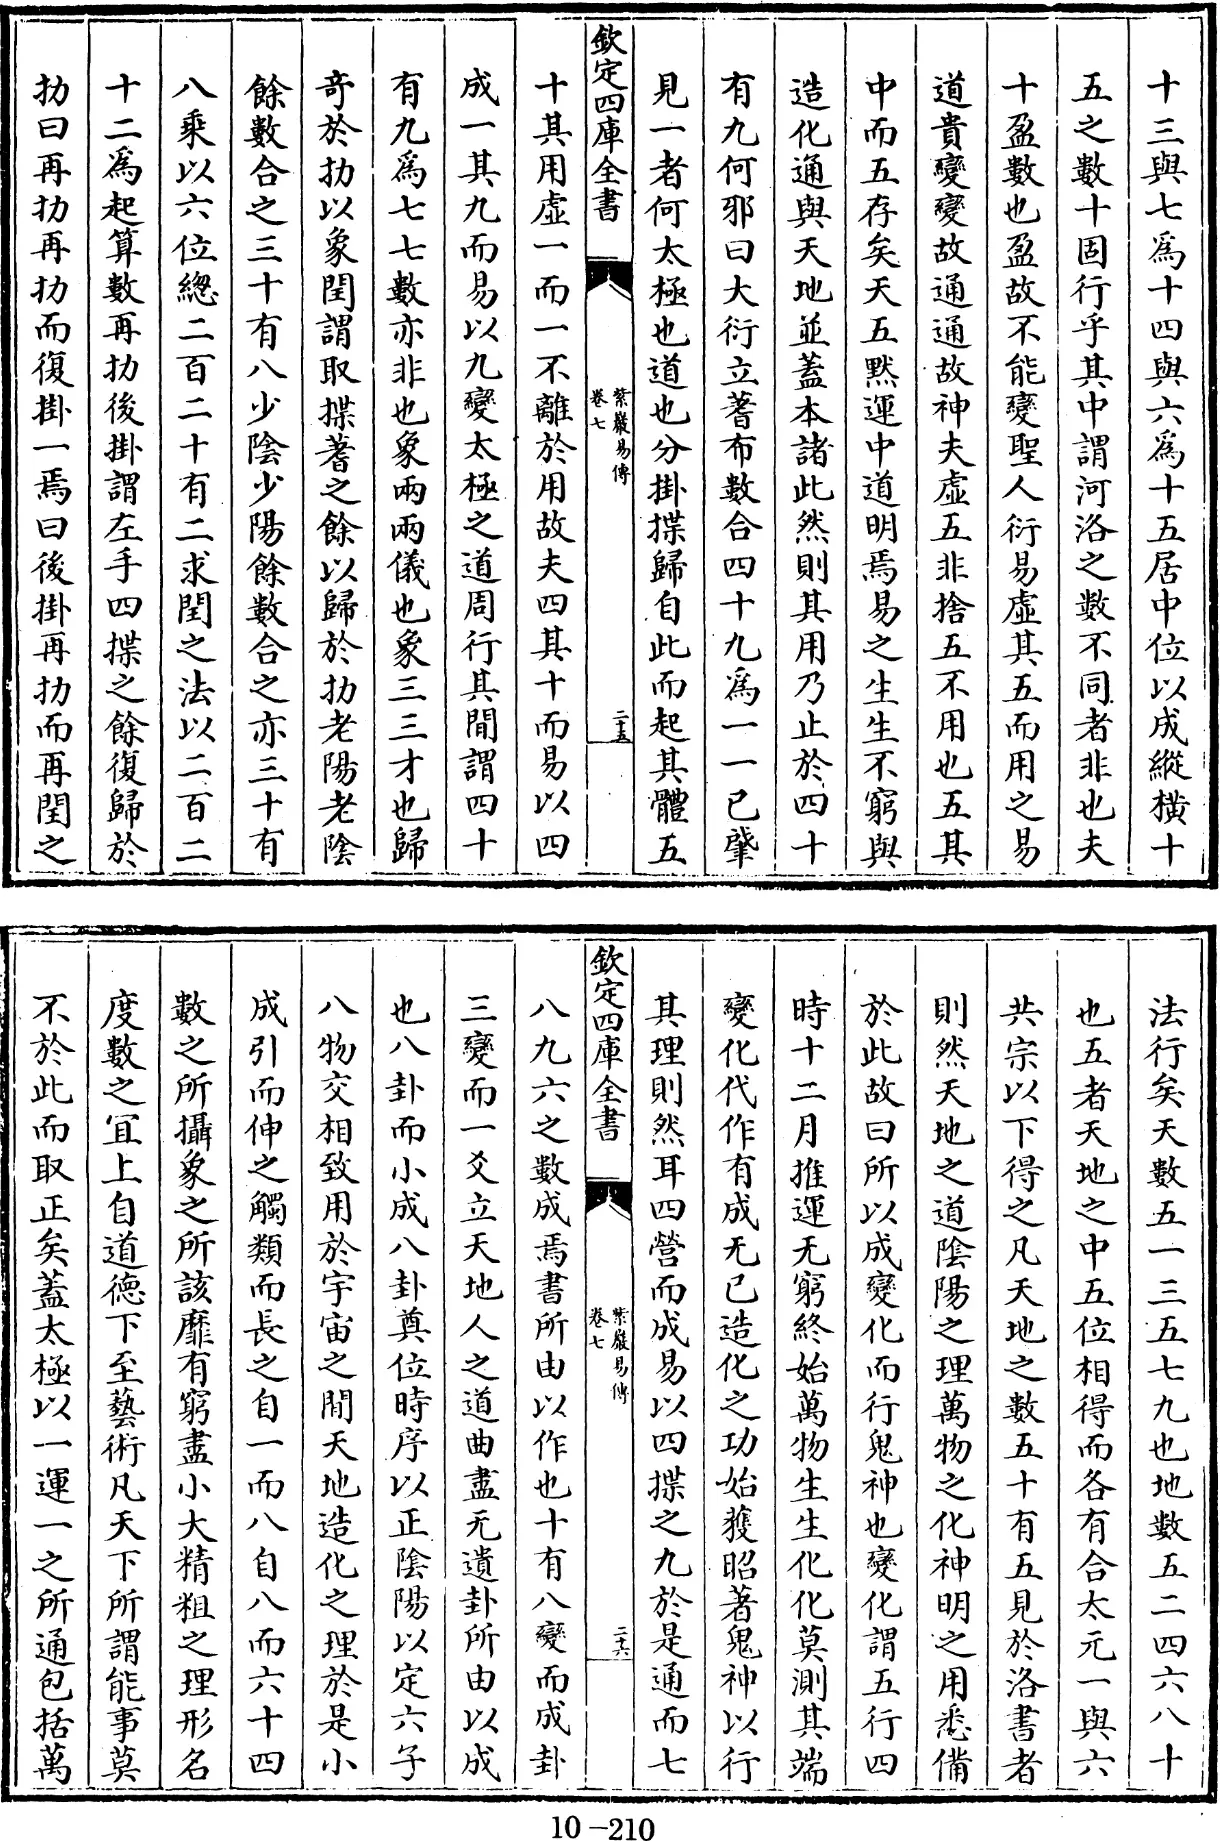 十三與七爲十四與六爲十五居中位以成縱橫十
五之數十固行乎其中謂河洛之數不同者非也夫
十盈數也盈故不能變聖人衍易虛其五而用之易
道貴變變故通通故神夫虛五非捨五不用也五其
中而五存矣天五默運中道明焉易之生生不窮與
造化通與天地並蓋本諸此然則其用乃止於四十
有九何邪曰大衍立蓍布數合四十九爲一一已肇
見一者何太極也道也分掛揲歸自此而起其體五
欽定四庫全書
紫巖易傳
卷七
二十五
十其用虛一而一不離於用故夫四其十而易以四
成一其九而易以九變太極之道周行其間謂四十
有九爲七七數亦非也象兩兩儀也象三三才也歸
奇於扐以象閏謂取揲蓍之餘以歸於扐老陽老陰
餘數合之三十有八少陰少陽餘數合之亦三十有
八乘以六位總二百二十有二求閏之法以二百二
十二爲起算數再扐後掛謂左手四揲之餘復歸於
扐曰再扐再扐而復掛一焉曰後掛再扐而再閏之
法行矣天數五一三五七九也地數五二四六八十
也五者天地之中五位相得而各有合太元一與六
共宗以下得之凡天地之數五十有五見於洛書者
則然天地之道陰陽之理萬物之化神明之用悉備
於此故曰所以成變化而行鬼神也變化謂五行四
時十二月推運无窮終始萬物生生化化莫測其端
變化代作有成无已造化之功始獲昭著鬼神以行
其理則然耳四營而成易以四揲之九於是通而七
欽定四庫全書
紫巖易傳
卷七
二十六
八九六之數成焉書所由以作也十有八變而成卦
三變而一爻立天地人之道曲盡无遺卦所由以成
也八卦而小成八卦奠位時序以正陰陽以定六子
八物交相致用於宇宙之間天地造化之理於是小
成引而伸之觸類而長之自一而八自八而六十四
數之所攝象之所該靡有窮盡小大精粗之理形名
度數之宜上自道德下至藝術凡天下所謂能事莫
不於此而取正矣蓋太極以一運一之所通包括萬
10-210